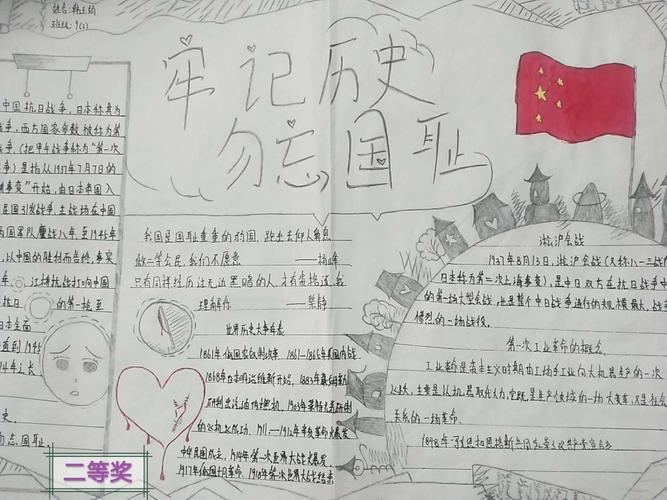 姓名:
班级: 9(2)
牢记历史
勿忘国耻
中国抗日战争,日本称其为
争,西方国家多数被称为第
战争,(把甲午战争称为“第一次
争)是指从1937年7月7日的
事变”开始,由日本帝国入
是国引发战争,主战场在中国
两国军队鏖战八年,至1945年
,以中国的胜利而告终,事实
江桥抗战打响中国
抗日的第一枪至
日本全面
看到1945
14年之长
史,
勿忘国耻。
我国是国耻重重的祖国,跑出去仰人鼻息
做二等公民,我们不愿意
只有同样经历过无边黑暗的人,才有资格说,我
理解你 ——柴静
世界历史大事年表
1861年俄国农奴制改革 1861-1865年美国内战
1868年日本明治维新开始,
1911-1912年辛亥革命大爆发
中华民国成立,1914年第一次世界大战爆发
1917年俄国十月革命,1918年第一次世界大战结束
淞沪会战
1937年8月13日,淞沪会战(又称八一三战
日本称为第二次上海事变),是中日双方在抗日战争中
的第一场大型会战,也是整个中日战争进行的规模最大,战斗
惨烈的一场战役。
第一次工业革命的概念
工业革命是资本主义时期由工场手工业向大机器生产的一次
飞跃,主要是以机器取代人力,它既是生产领域的一场大变革,又是社会
关系的一场革命。
二等奖